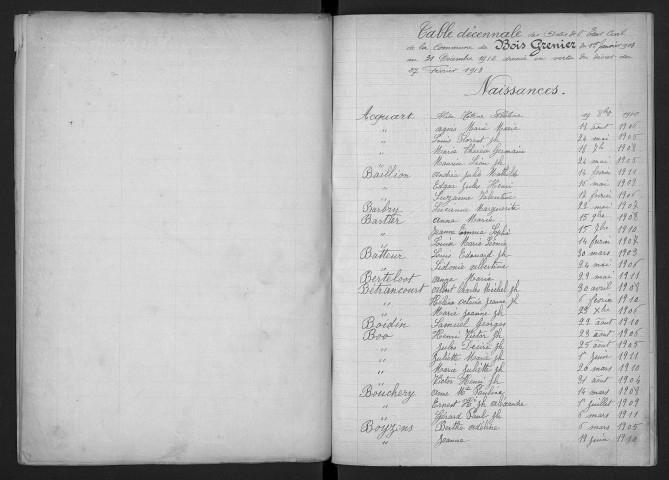 Table décennale des Actes de l'Etat Civil
de la Commune de Bois Grenier du 1er janvier 1903
au 31 Décembre 1912 dressée en vertu du décret du
27 Février 1913
Naissances.
Acquart Hélène 19 8bre 1910
" Agnès Marie Maria 13 août 1906
" Louis Florent Jh 24 mai 1905
" Marie Thérèse Germaine 18 7bre 1908
" Maurice Léon Jh 24 mai 1905
Baillion Andréa Julie Mathilde 14 février 1911
" Edgar Jules Henri 16 mai 1903
" Suzanne Valentine 12 février 1906
Barbry Lucienne Marguerite 22 mai 1907
Bartier Anna Marie 15 9bre 1908
" Jeanne Emma Sophie 15 7bre 1910
" Louisa Marie Léonie 14 février 1907
Batteur Louis Edouard Jh 30 mars 1903
" Sidonie Albertine 24 mai 1906
Berteloot Ange Marie 29 mai 1911
Bétrancourt Albert Charles Michel Jh 30 avril 1908
" Hélène Octavie Jeanne Jh 6 février 1910
" Marie Jeanne Jh 23 Xbre 1906
Boidin Samuel Georges 22 août 1910
Boo Henri Victor Jh 23 août 1906
" Jules Désiré Jh 25 août 1905
" Juliette Marie Jh 1er juin 1911
" Marie Juliette Jh 26 mars 1910
" Victor Henri Jh 31 août 1904
Bouchery Anne Mie Pauline 14 mars 1908
" Ernest Hri Jh Alexandre 1er juillet 1909
" Gérard Paul Jh 6 mars 1911
Boyzens Berthe Adeline 6 mars 1905
" Jeanne 19 juin 1910